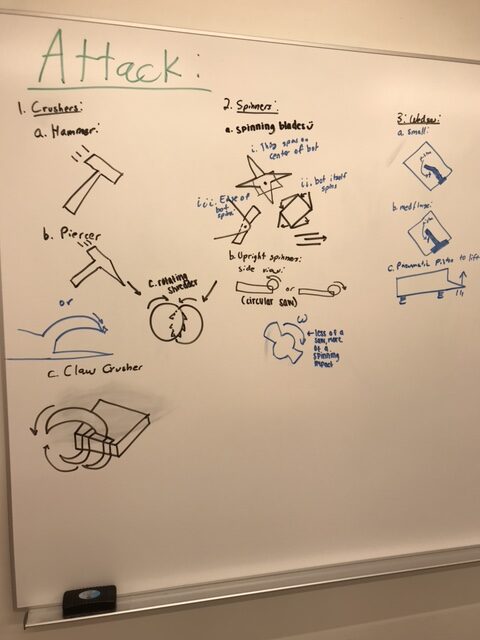 Attack:
1. Crushers:
a. Hammer:
b. Piercer
or
c. Claw Crusher
2. Spinners:
a. spinning blades
i. Thing spins on
center of bot
ii. bot itself
spins
iii. Edge of
bot
spins
b. Upright spinners:
side view:
or
(circular saw)
ω
← less of a
saw, more
of a
spinning
impact
c. rotating
shredder
3.
a. small:
b. med/large:
c. Pneumatic Piston to lift